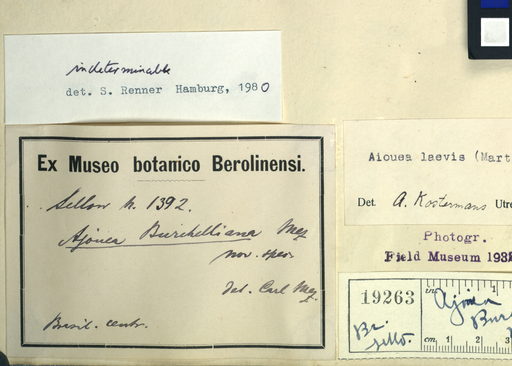 indeterminable
det. S. Renner Hamburg, 1980
Ex Museo botanico Berolinensi.
Sellow n. 1392.
Ajouea Burchelliana Mez
nov. spec.
det. Carl Mez.
Brasil. centr.
Aiouea laevis (Mart
Det. A. Kostermans Utre
Photogr.
Field Museum 193
19263
Br.
Sello.
in 1
Ajouea
Bur
cm 1 2 3